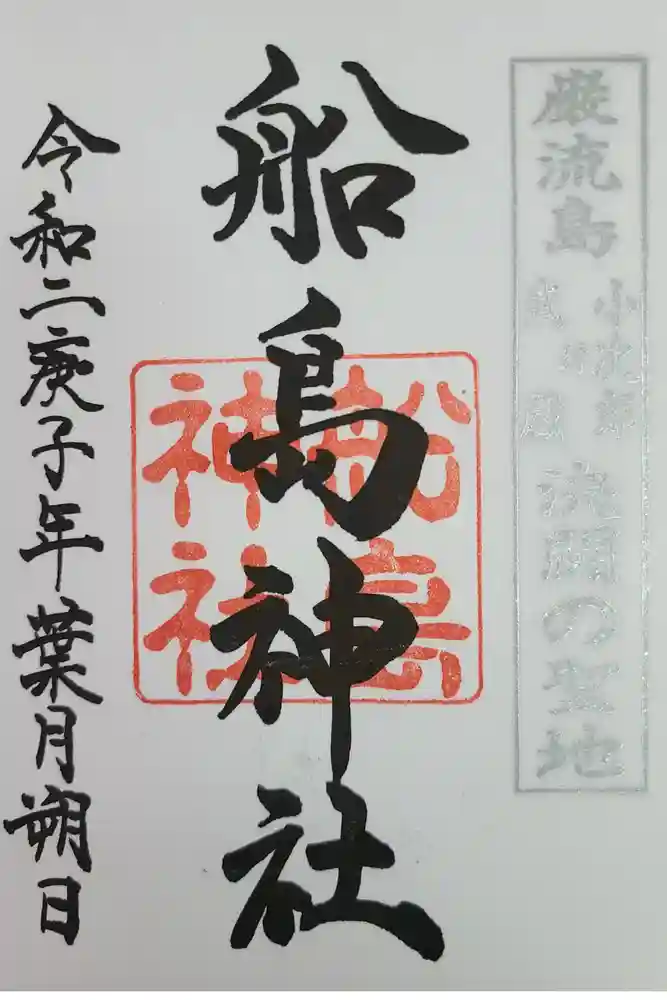 巌流島
小次郎
武蔵
決闘の聖地
船島神社
船島
神社
令和二庚子年葉月朔日